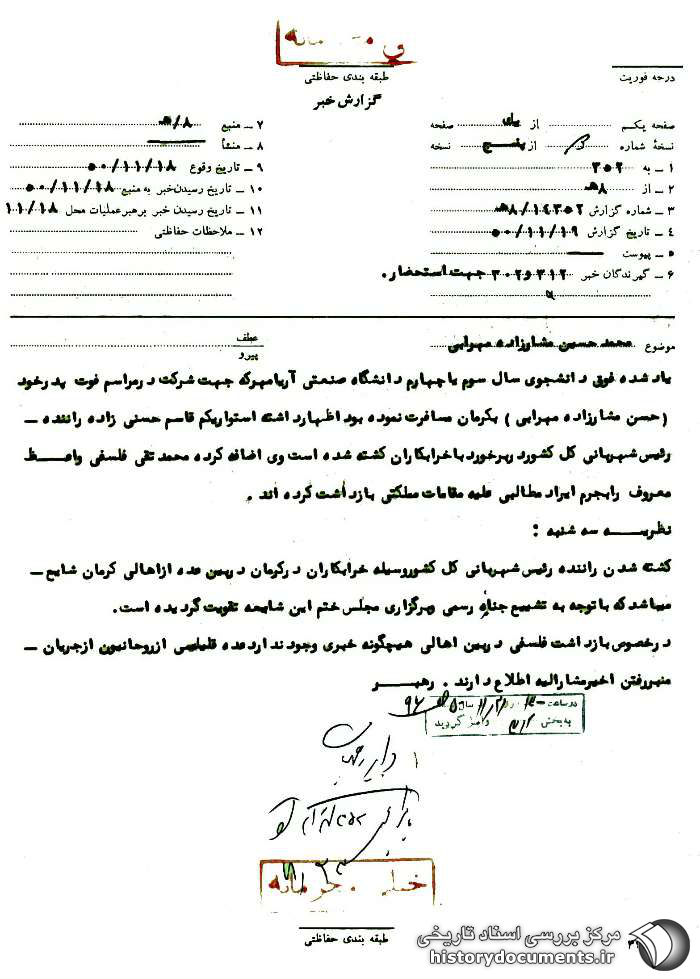 درجه فوریت
طبقه بندی حفاظتی
گزارش خبر
صفحه یکم از صفحه
نسخهٔ شماره از پنج نسخه
۱ ــ به ۳۵۲
۲ ــ از ۸ﻫ
۳ ــ شماره گزارش ۸/۱۴۳۵۲ﻫ
۴ ــ تاریخ گزارش ۵۰/۱۱/۱۹
۵ ــ پیوست
۶ ــ گیرندگان خبر ۳۱۲و۳۰۲ جهت استحضار.
۷ ــ منبع
۸ ــ منشأ
۹ ــ تاریخ وقوع ۵۰/۱۱/۱۸
۱۰ ــ تاریخ رسیدن خبر به منبع ۵۰/۱۱/۱۸
۱۱ ــ تاریخ رسیدن خبر برهبر عملیات محل ۱۱/۱۸
۱۲ ــ ملاحظات حفاظتی
موضوع محمد حسین مشارزاده مهرابی
عطف
پیرو
یاد شده فوق دانشجوی سال سوم یا چهارم دانشگاه صنعتی آریامهر که جهت شرکت در مراسم فوت پدر خود
(حسن مشارزاده مهرابی) بکرمان مسافرت نموده بود اظهار داشته استوار یکم قاسم حسنی زاده راننده ــ
رئیس شهربانی کل کشور در برخورد با خرابکاران کشته شده است وی اضافه کرده محمد تقی فلسفی واعظ
معروف را بجرم ایراد مطالبی علیه مقامات مملکتی بازداشت کرده اند .
نظریه سه شنبه :
کشته شدن راننده رئیس شهربانی کل کشور وسیله خرابکاران در کرمان در بین عده از اهالی کرمان شایع ــ
میباشد که با توجه به تشییع جنازه رسمی و برگزاری مجلس ختم این شایعه تقویت گردیده است.
در خصوص بازداشت فلسفی در بین اهالی هیچگونه خبری وجود ندارد عده قلیلی از روحانیون از جریان ــ
منبر رفتن اخیر مشارالیه اطلاع دارند . رهبر
در ساعت روز سال
به بخش واصل گردید
خیلی محرمانه
طبقه بندی حفاظتی
مرکز بررسی اسناد تاریخی
historydocuments.ir